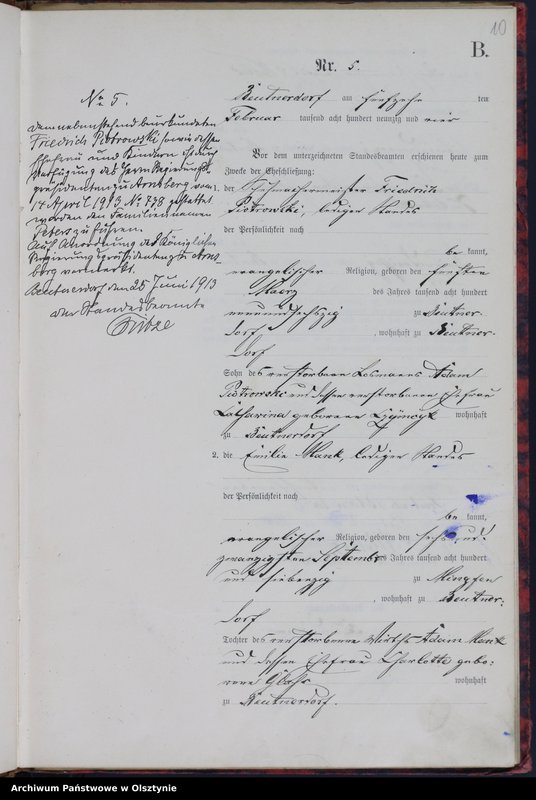 10
B.
Nr. 5.
Beutnerdorf am fünfzehn ten
Februar tausend acht hundert neunzig und vier
Vor dem unterzeichneten Standesbeamten erschienen heute zum
Zwecke der Eheschließung:
1. der Schuhmachermeister Friedrich
Piotrowski, lediger Standes
der Persönlichkeit nach
be kannt,
evangelischer Religion, geboren den fünften
Maerz des Jahres tausend acht hundert
neunundsechszig zu Beutner-
dorf, wohnhaft zu Beutner-
dorf
Sohn des verstorbenen Losmanns Adam
Piotrowski und dessen verstorbenen Ehefrau
Catharina geborene wohnhaft
zu Beutnerdorf
2. die Emilie Marek, lediger Standes
der Persönlichkeit nach
be kannt,
evangelischer Religion, geboren den sechsund-
zwanzigsten September des Jahres tausend acht hundert
und siebenzig zu Mingfen
, wohnhaft zu Beutner-
dorf
Tochter des verstorbenen Wirths Adam Marek
und dessen Ehefrau Charlotte gebo-
rene wohnhaft
zu Beutnerdorf.
No 5.
Dem nebenstehend beurkundeten
Friedrich Piotrowski sowie dessen
Ehefrau und Kindern ist durch
Verfügung des Herrn Regierungs-
präsidenten zu Arnsberg vom
14 April 1913 No 778 gestattet
worden den Familiennamen
Peters zu führen.
Auf Anordnung des Königlichen
Regierungspräsidenten zu Arns-
berg vermerkt.
Beutnerdorf den 25 Juni 1913
Der Standesbeamte
Archiwum Państwowe w Olsztynie